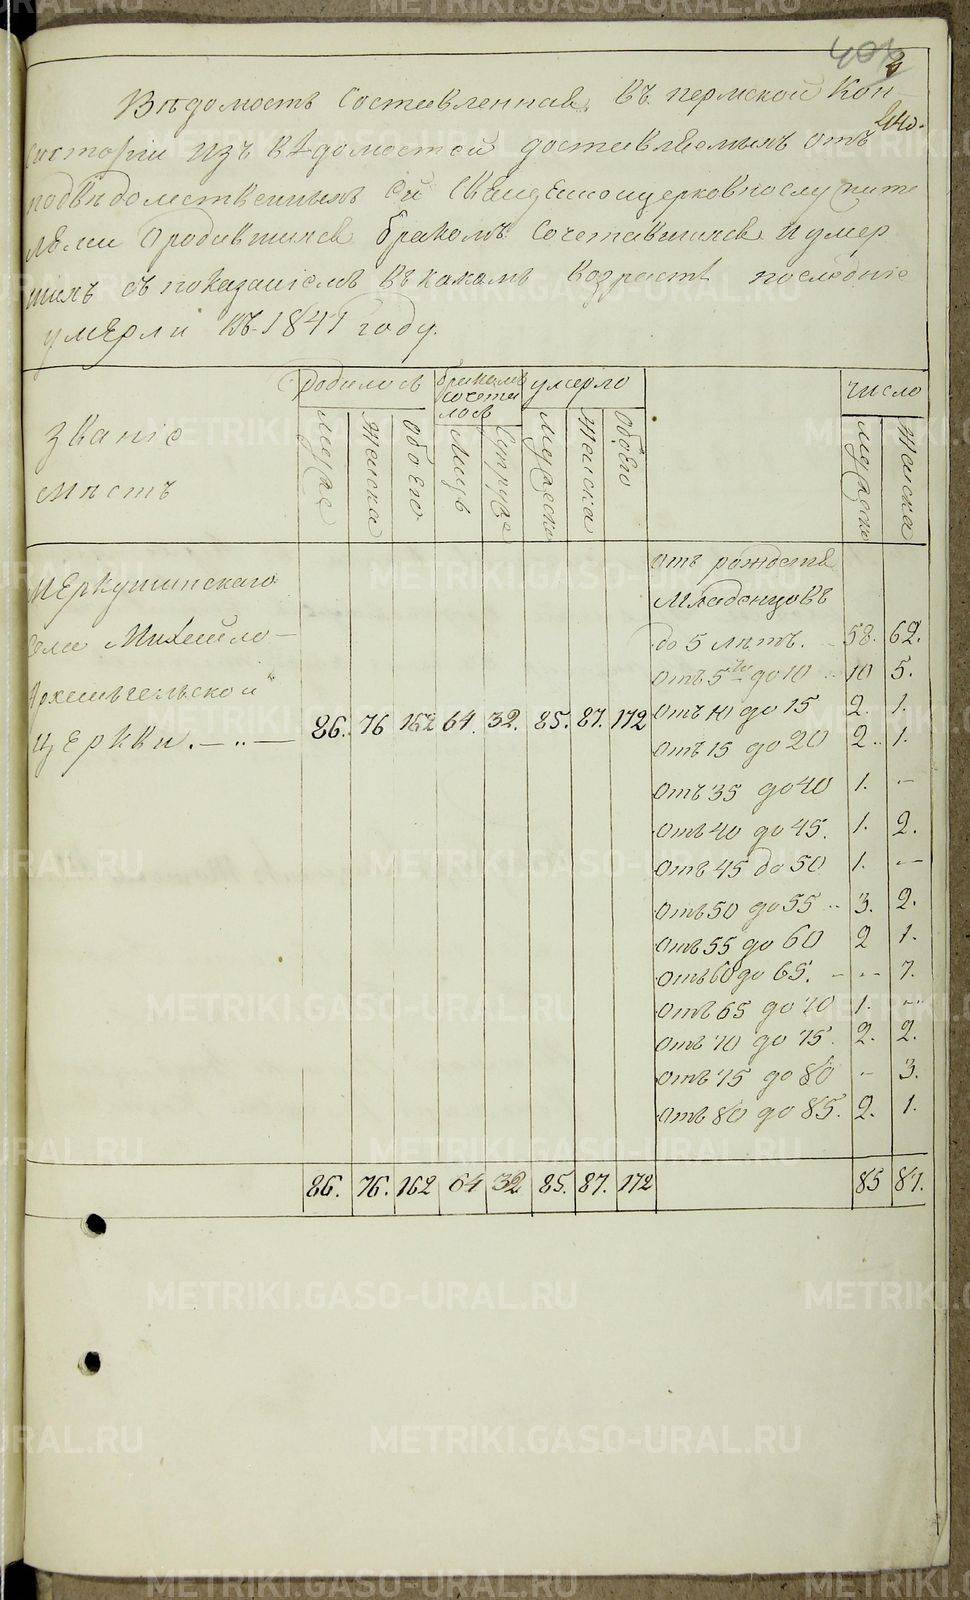 Вѣдомость составленная въ пермской Кон-
систоріи изъ вѣдомостей доставляемыхъ отъ
подвѣдомственныхъ ей Священноцерковнослужите
лями о родившихся бракомъ сочетавшихся и умер
шихъ съ показаніемъ въ какомъ возрастѣ последніе
умерли въ 1841 году.
родилось бракомъ сочета лось умерло число
званіе
мѣстъ
мужес женска обоего лицъ супруж мужеска женска обоего мужеска женска
Меркушинскаго
села Михайло-
Архангельской
церкви. 86. 76 162 64. 32. 85. 87. 172
отъ рожденія
младенцовъ
до 5 лѣтъ. 58. 62.
отъ 5ти до 10 10 5.
отъ 10 до 15 2. 1.
отъ 15 до 20 2.. 1.
отъ 35 до 40 1. -
отъ 40 до 45. 1. 2.
отъ 45 до 50 1. -
отъ 50 до 55 3. 2.
отъ 55 до 60 2 1.
отъ 60 до 65. - 7.
отъ 65 до 70 1. -
отъ 70 до 75. 2. 2.
отъ 75 до 80 - 3.
отъ 80 до 85. 2. 1.
86. 76. 162 64 32 85. 87. 172 85 87.
METRIKI.GASO-URAL.RU